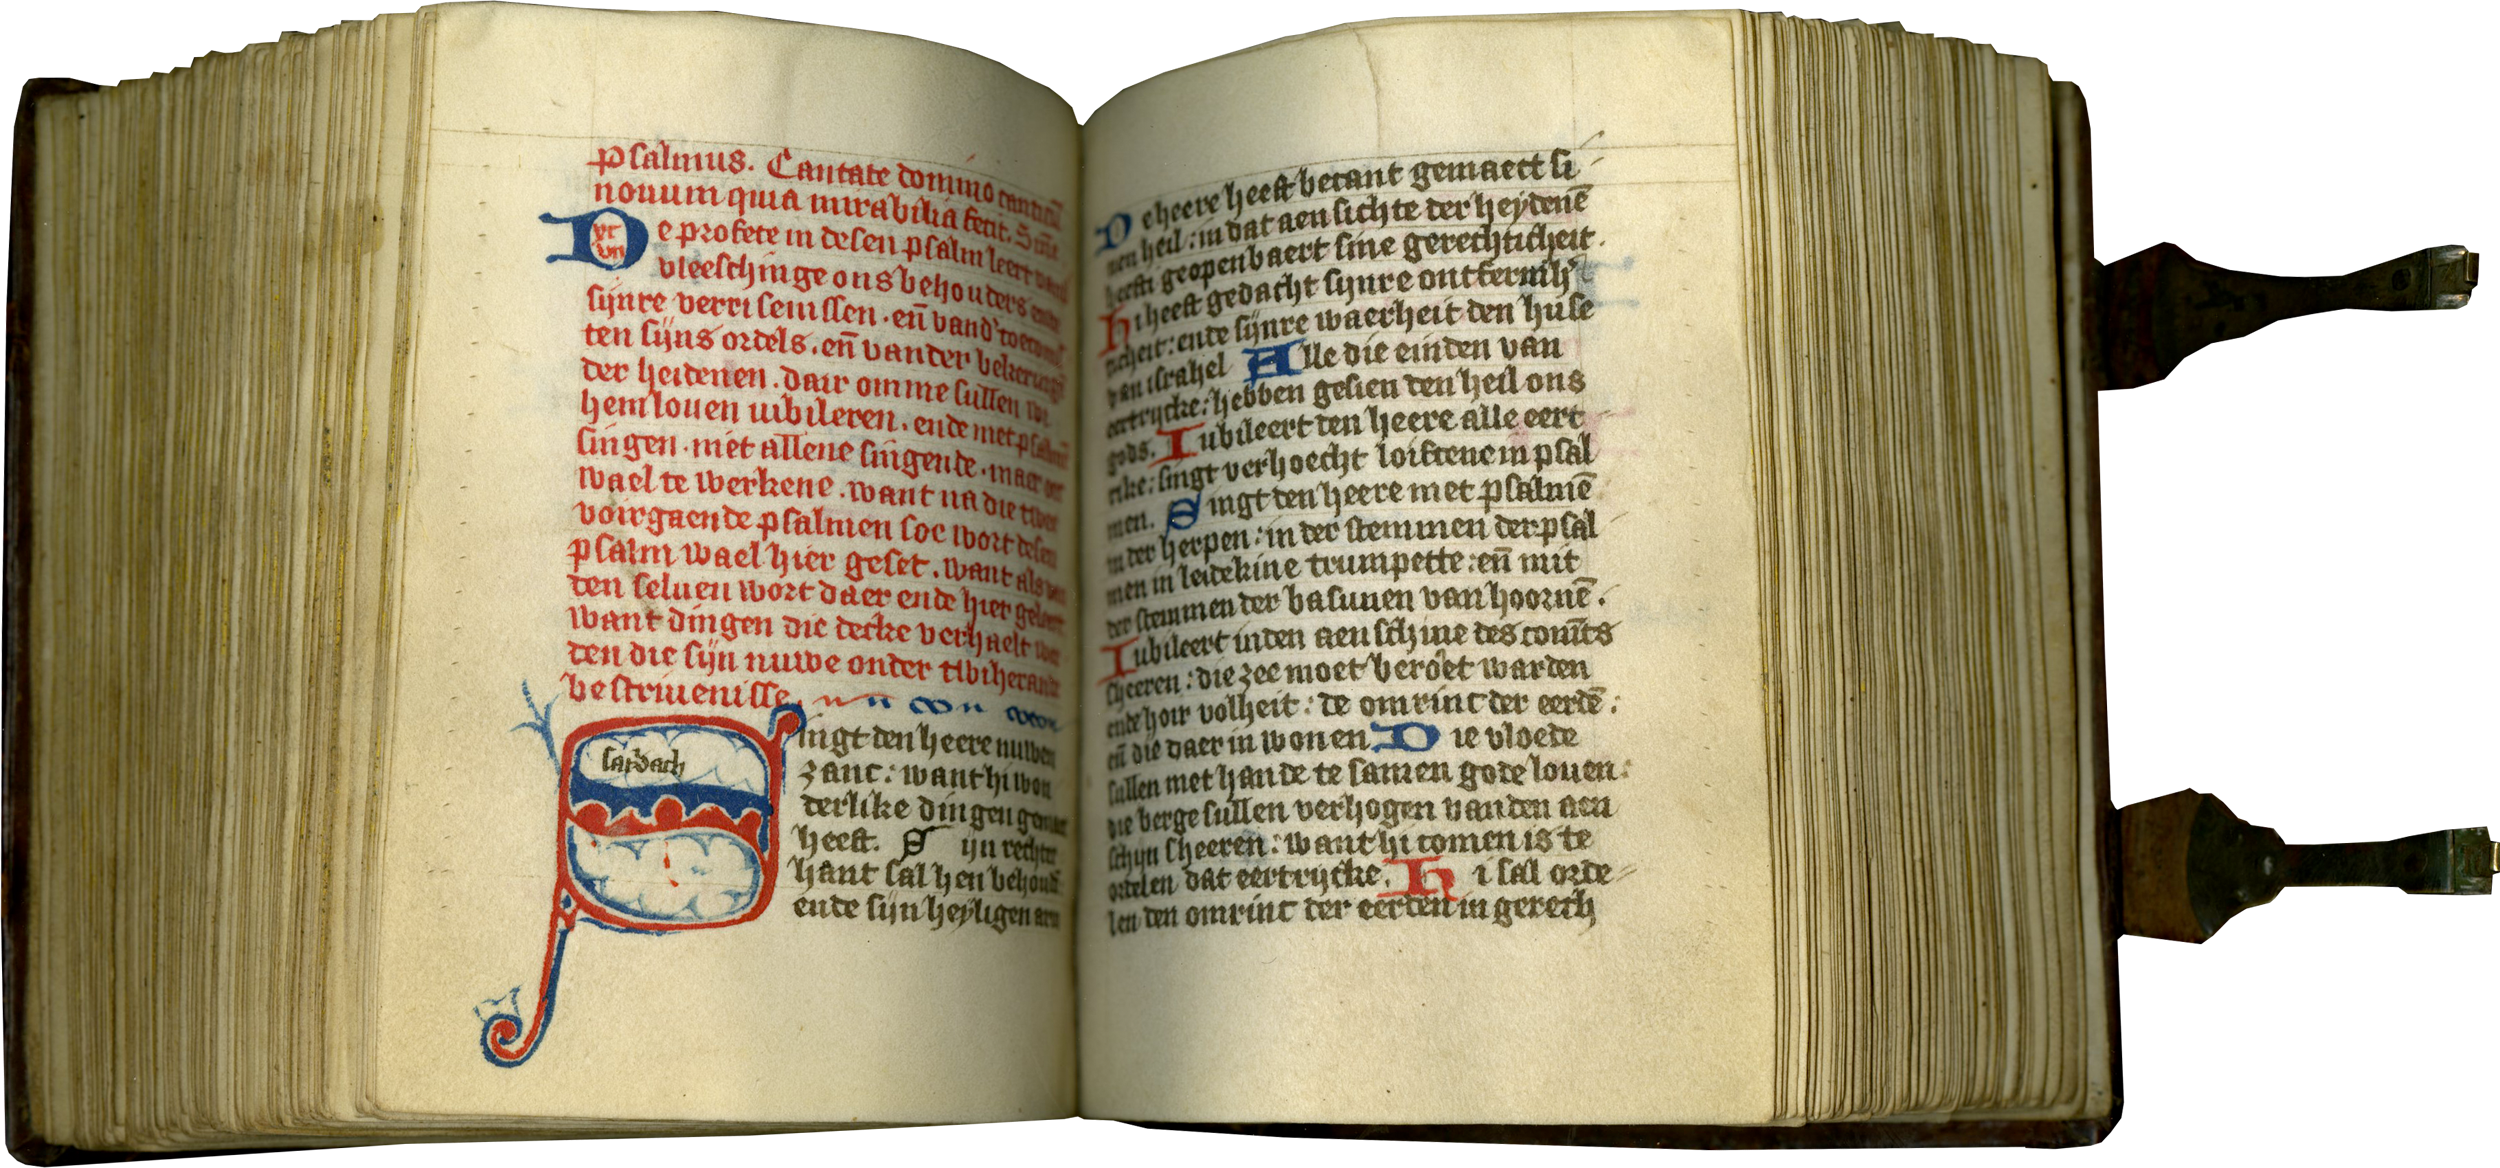 Psalmus. Cantate domino canticū
nouum quia mirabilia fecit.
xc
vii
De profete in desen psalm leert van
vleeschinge ons behouders ende
sijnre verrisenissen. en̄ vand' toecoms
ten sijns ordels. en̄ vander bekeringē
der heidenen. dair omme sullen wi
hem louen iubileren. ende met psalmē
singen. niet allene singende. maer oec
wael te werkene. want na die twee
voirgaende psalmen soe wort desen
psalm wael hier geset. want als van
den seluen wort daer ende hier geleert
want dingen die decke verhaelt wer
den die sijn nuwe onder
bescriuenisse.
Singt den heere nuwen
sabbath
zanc: want hi won
derlike dingen gemaect
heeft. Sijn rechter
hant sal hen behoudē
ende sijn heyligen arm
De heere heeft becant gemaect si
nen heil: in dat aensichte der heydenē
heefti geopenbaert sine gerechticheit.
Hi heeft gedacht sijnre ontfermh
ticheit: ende sijnre waerheit den huse
van israhel Alle die einden van
eertrycke: hebben gesien den heil ons
gods. Iubileert den heere alle eert
rike: singt verhoecht loift ende in psal
men. Singt den heere met psalmē
in der herpen: in der stemmen der psal
men in leidekine trumpette: en̄ mit
der stemmen der basunen van hoornē.
Iubileert in den aenschine des conīcs
sheeren: die zee moet beroet warden
ende hoir volheit: de omrinc der eerdē:
en̄ die daer in wonen Die vloede
sullen met hande te samen gode louen:
die berge sullen verhogen van den aen
schijn sheeren: want hi comen is te
ordelen dat eertrycke. Hi sal orde
len den omrinc der eerden in gerech